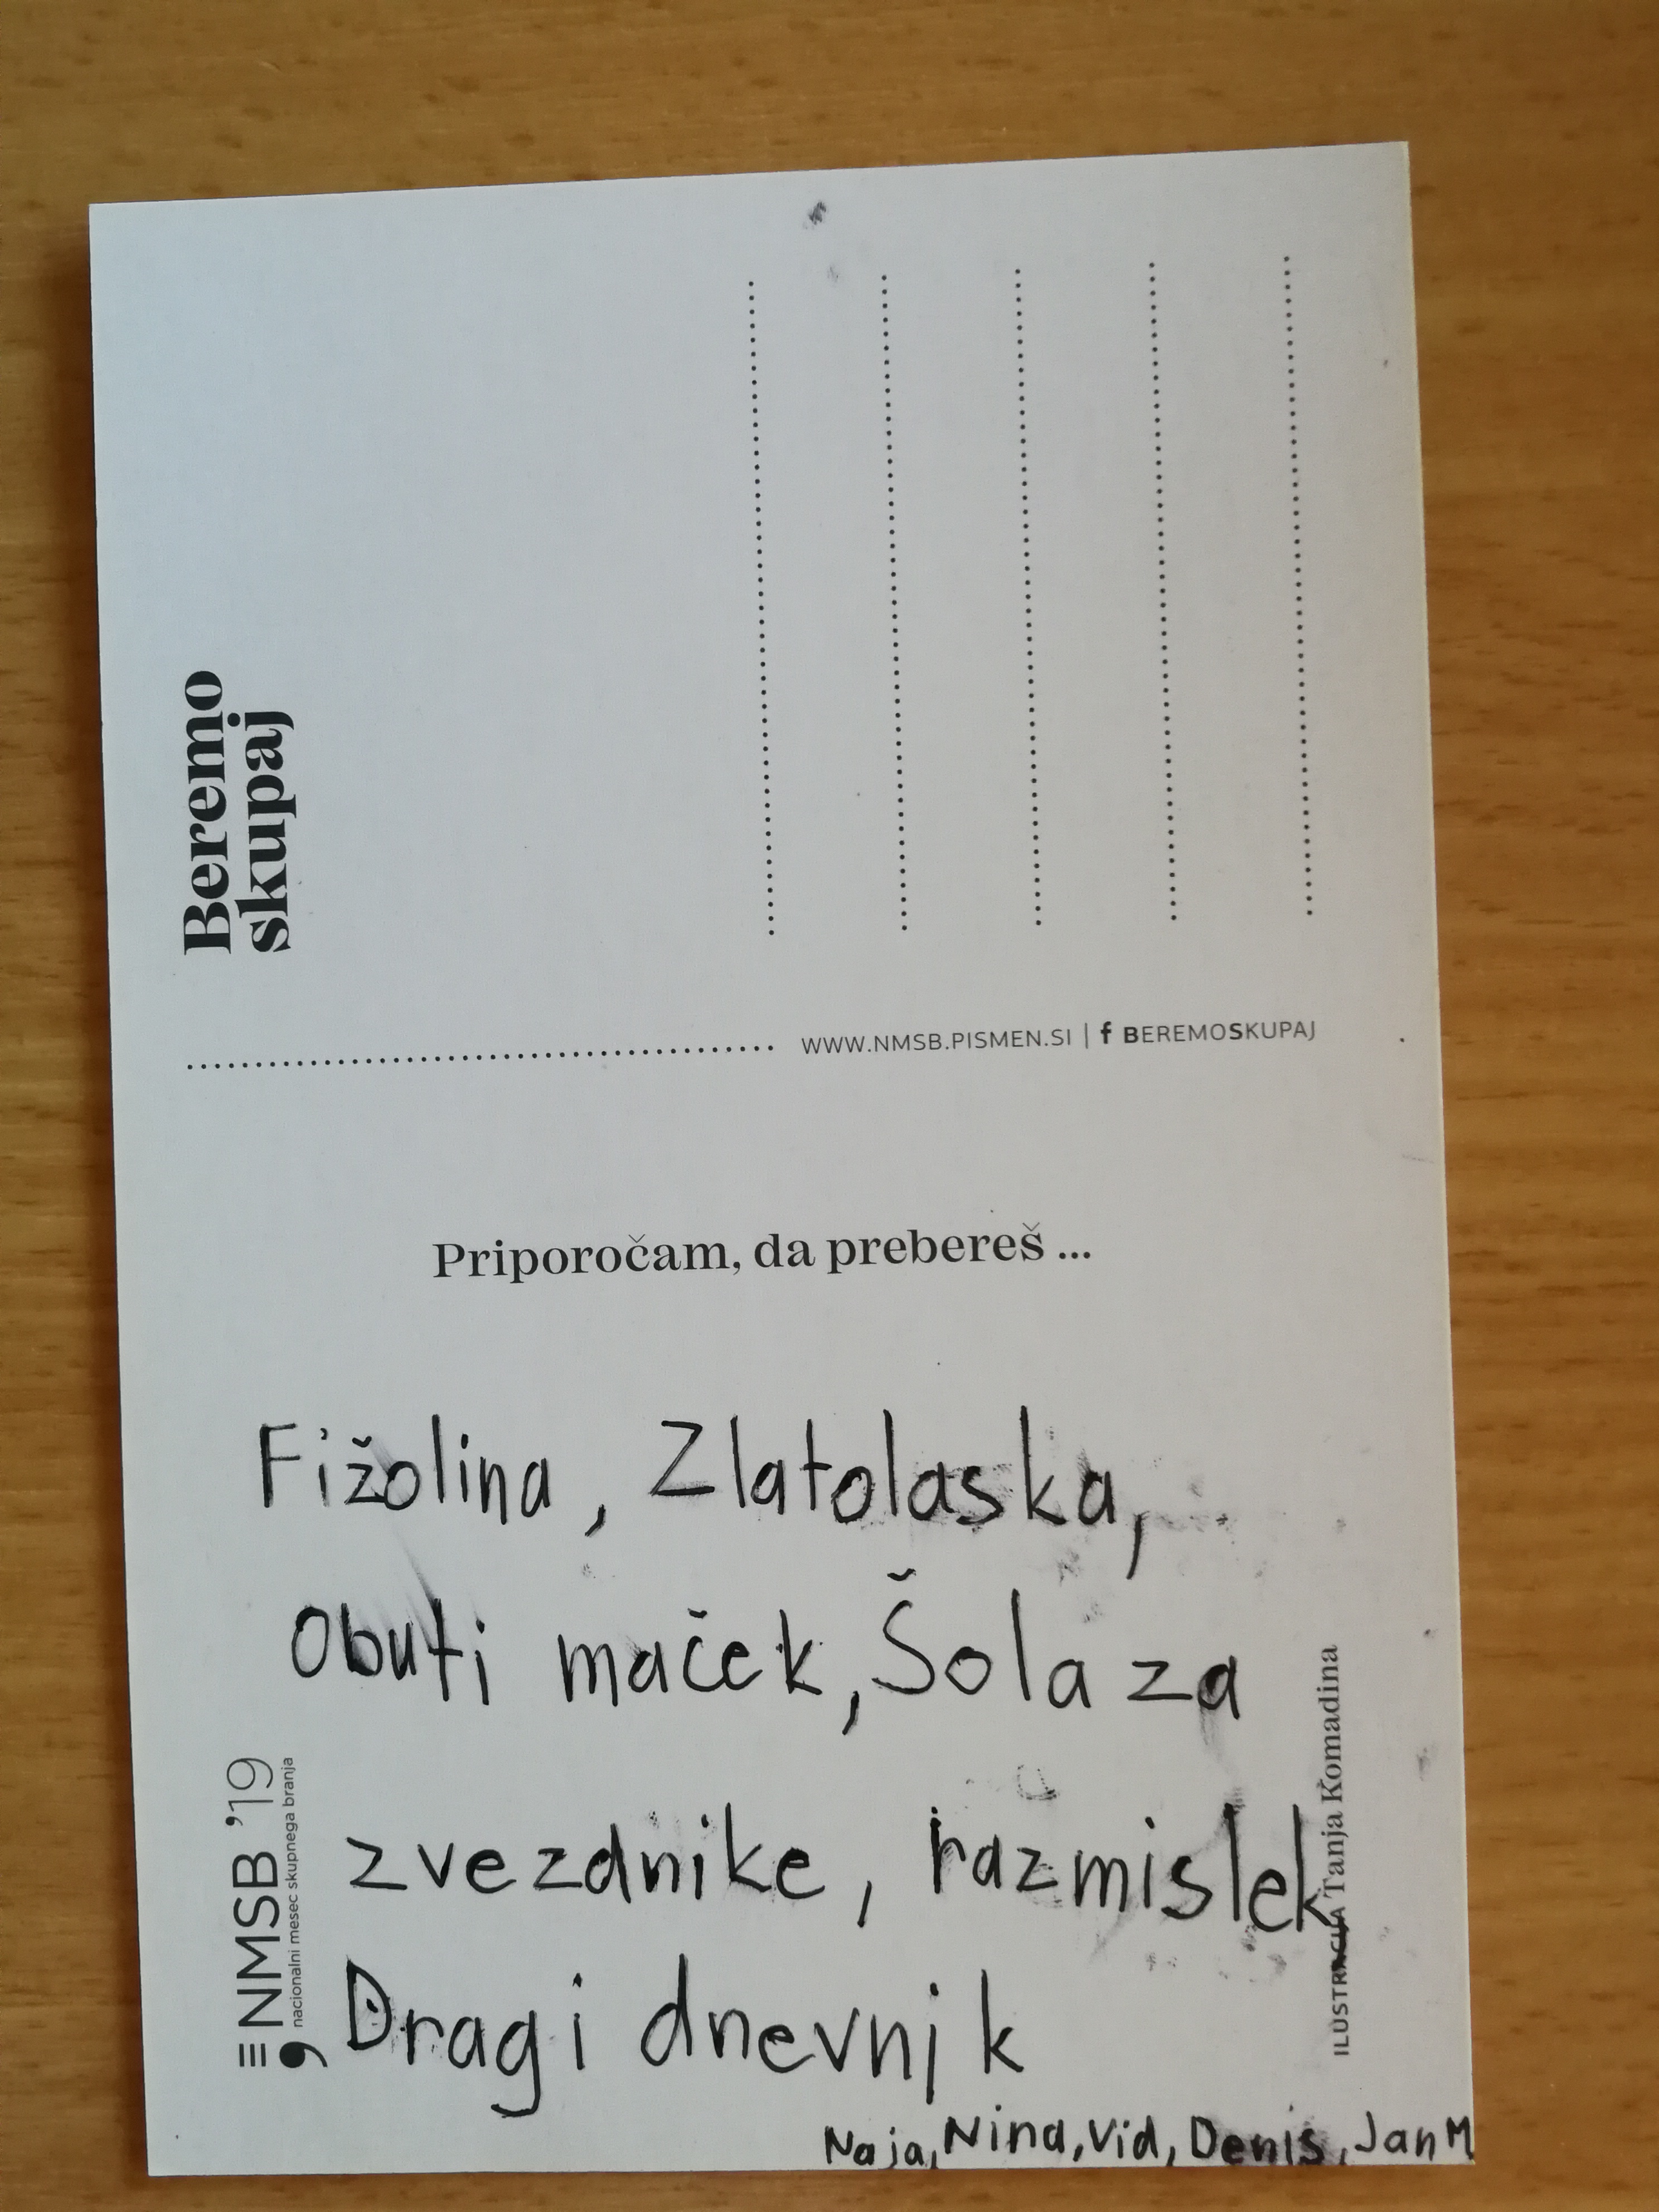 Beremo
skupaj
WWW.NMSB.PISMEN.SI | f BEREMOSKUPAJ
Priporočam, da prebereš ...
Fižolina, Zlatolaska,
Obuti maček, Šola za
zvezdnike, razmislek
Dragi dnevnik
Naja, Nina, Vid, Denis, Jan M
NMSB '19
nacionalni mesec skupnega branja
ILUSTRACIJA Tanja Komadina